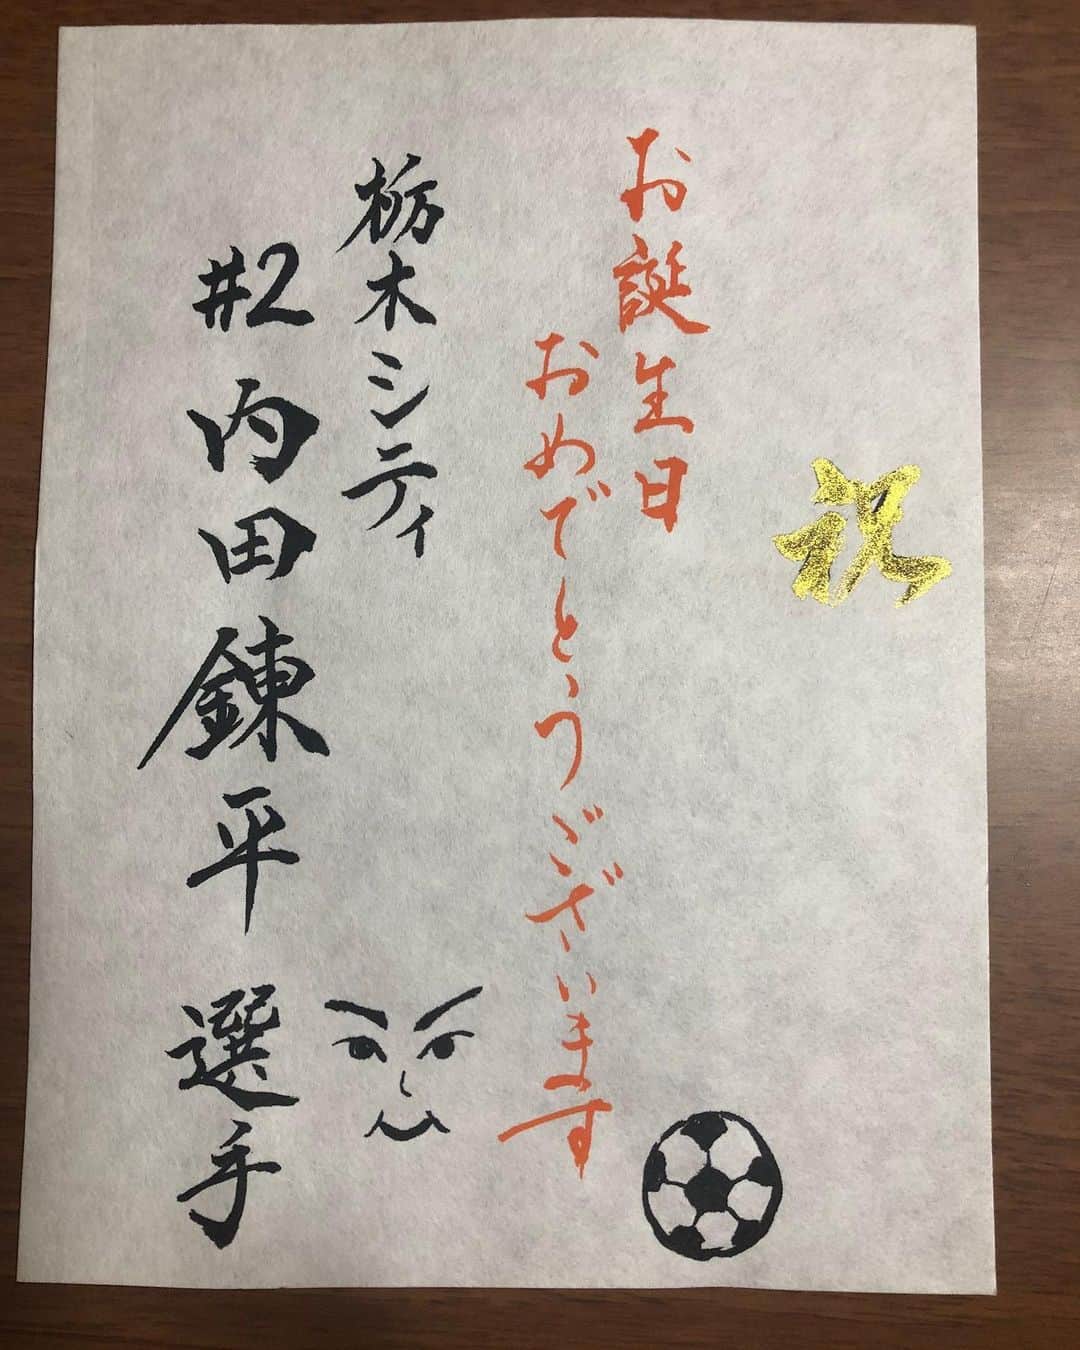 祝
お誕生日
おめでとうございます
栃木シティ
#2 内田錬平 選手